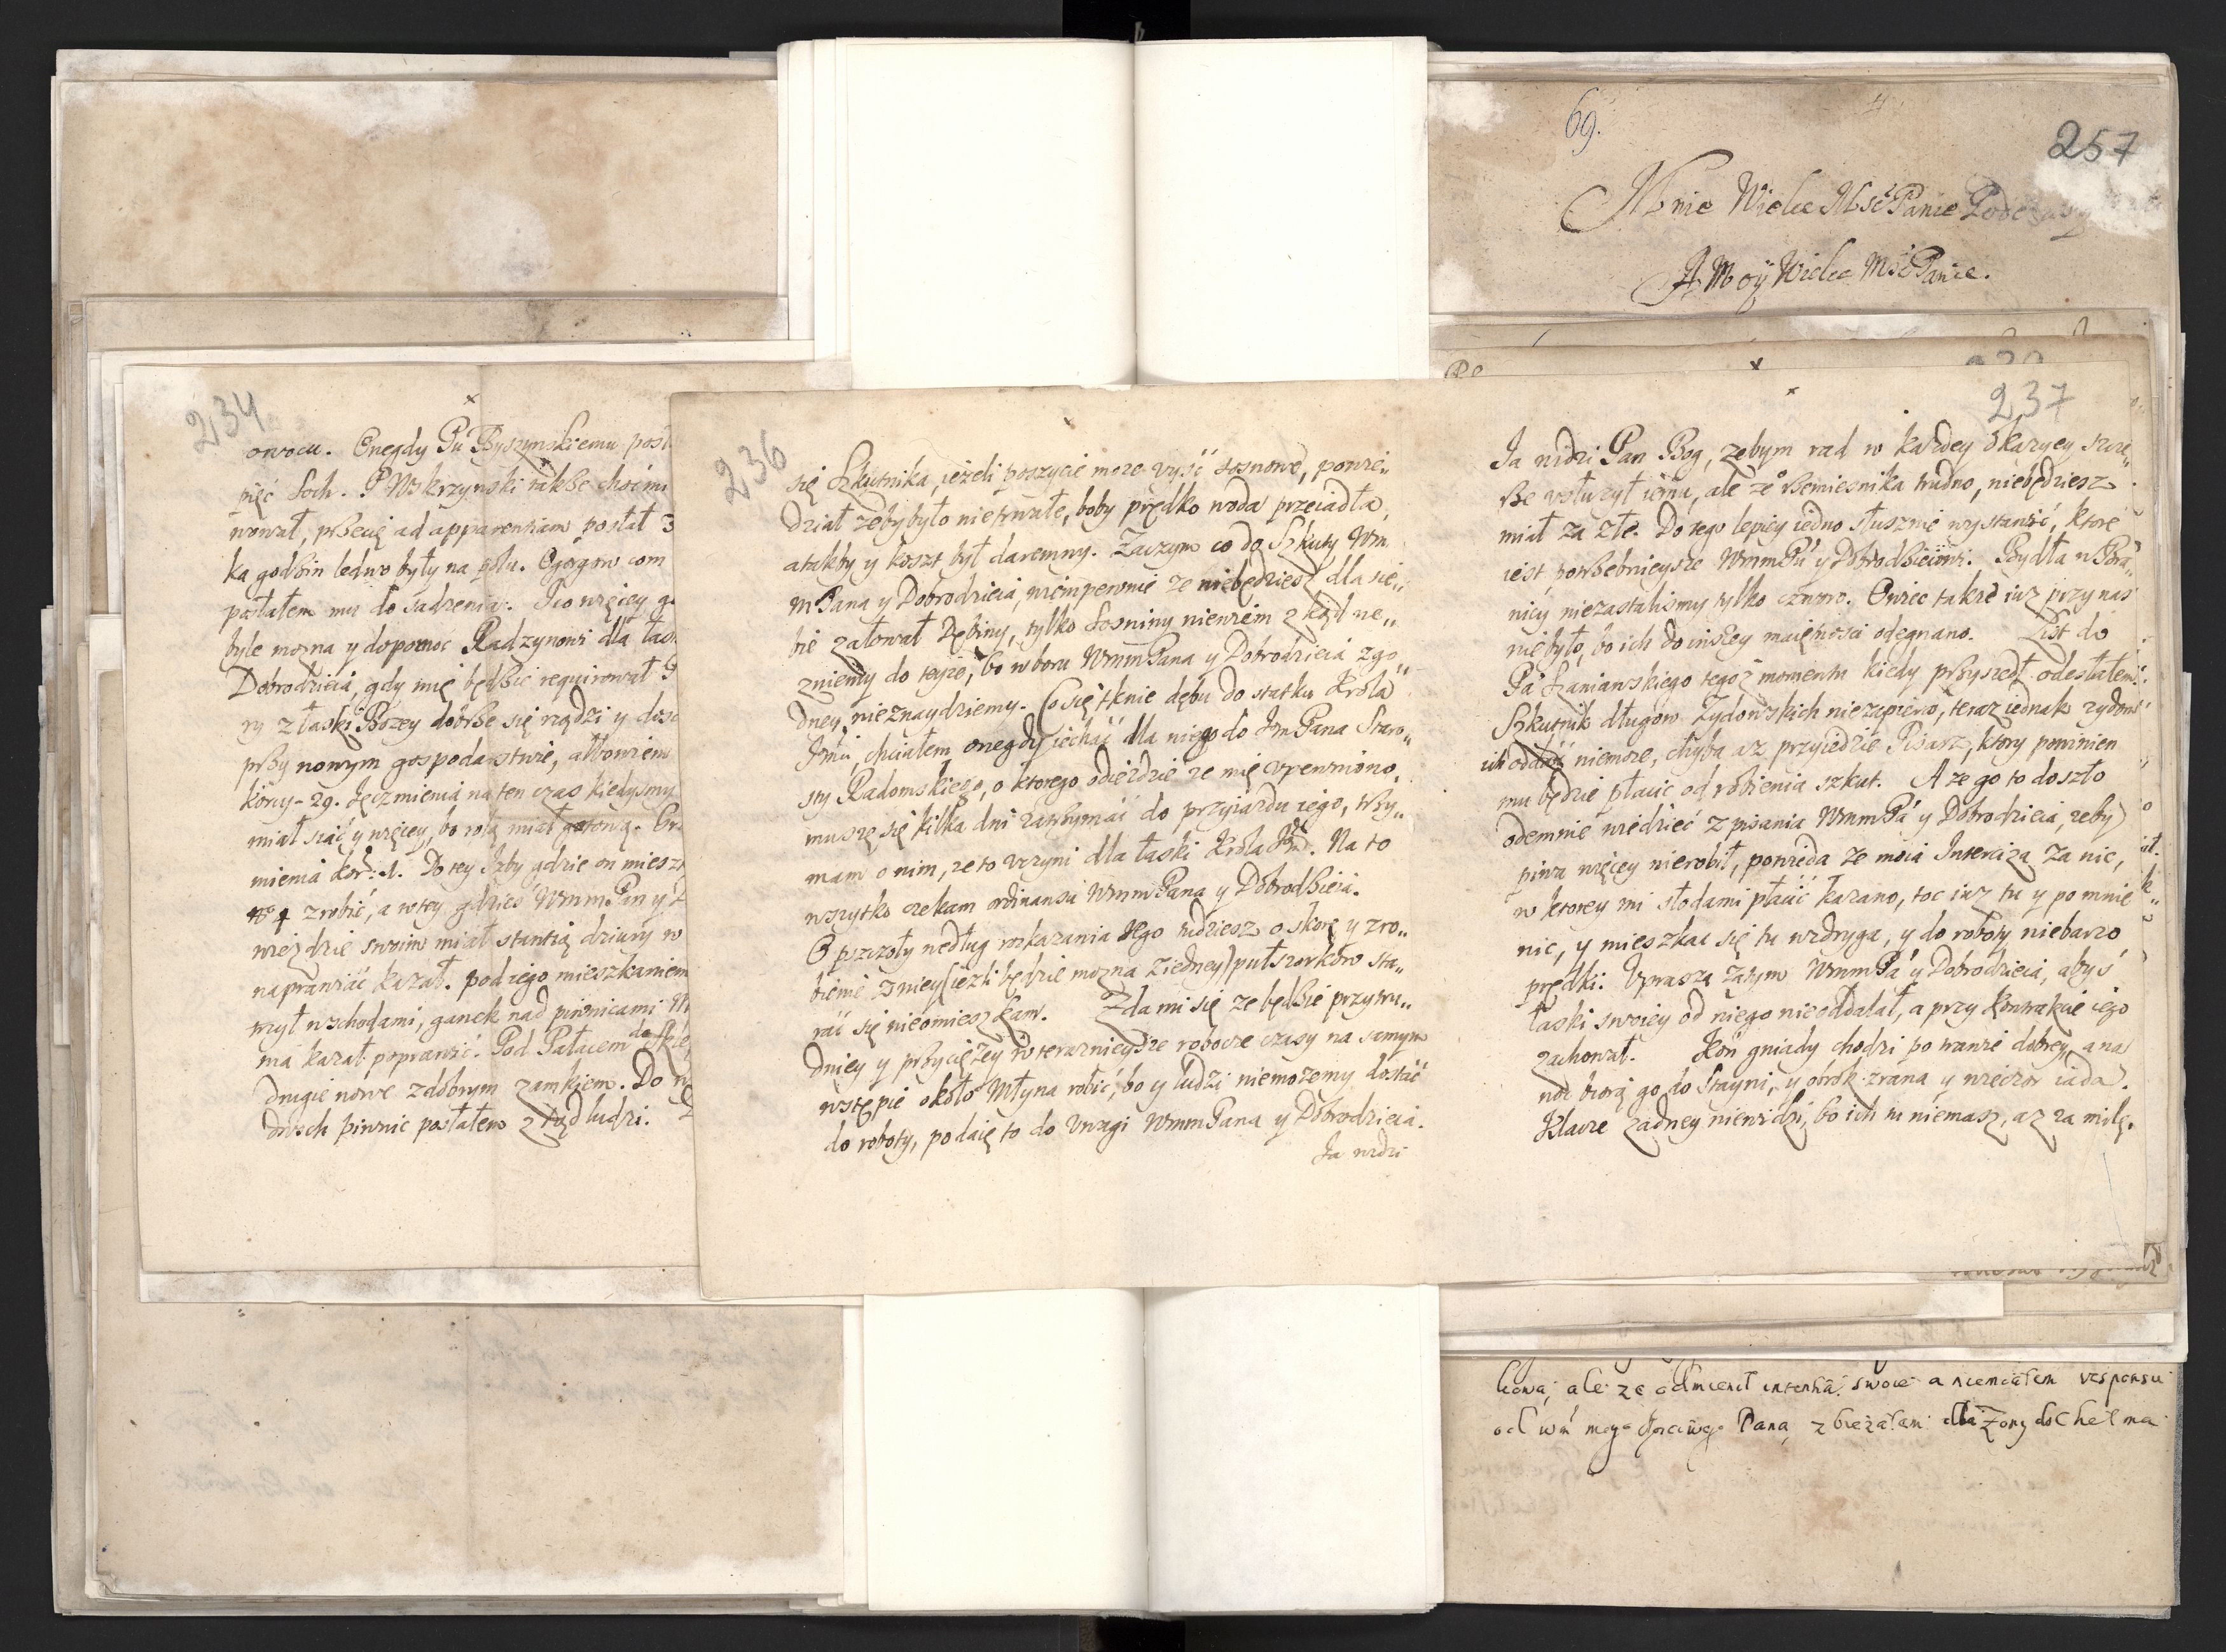 234
owocu. Onegdy Pu Byszynskiemu posł
pięć Soch. P Wskrzynski takße choć mi
nował, przecię ad apparentiam posłał 3
ka godßin ledwo były na polu. Ogorgow com
posłałem mu do sadzenia. I co więcey
byle mozna y dopomoc Radzynowi dla łas
Dobrodzieia, gdy mię będßie requirował
ry z łaski Bozey dobrße się rządzi y dos
prßy nowym gospodarstwie, albowiem
korcy-29. Jęczmienia na ten czas kiedysmy
miał siać y więcey, bo rolą miał gotową.
mienia kor: 1. Do tey Izby gdzie on miesz
zrobić, a w tey gdzieś WmmPan y
wiezdzie swoim miał stantią dziury w
naprawiać kazał. pod iego mieszkaniem
wschodami, ganek nad piwnicami
ma kazał poprawić. Pod Pałacem do
drugie nowe z dobrym zamkiem. Do
dwoch piwnic posłałem z tąd ludzi.
236
się Szkutnika, iezeli poszycie moze byść sosnowe, powie„
dział zeby było nietrwałe, boby prędko woda przeiadła,
a takby y koszt był daremny. Zaczym co do Szkuty Wm
mPana y Dobrodzieia, wiem pewnie ze niebędziesz dla sie„
bie załował Dębiny, tylko Sosniny niewiem z kąd we„
zniemy do teyze, bo w boru WmmPana y Dobrodzieia zgo„
dney nieznaydziemy. Co się tknie dębu do statku Krola
Jmci, chciałem onegdy iechać dla niego do JmPana Staro„
sty Radomskiego, o ktorego odiezdzie ze mię vpewniono,
muszę się kilka dni zatrßymać do przyiazdu iego, trßy„
mam o nim, ze to vczyni dla łaski Krola Jmci. Na to
wszytko czekam ordinansu WmmPana y Dobrodßieia.
O pszczoły według rozkazania Jego tudziesz o skorę y zro„
bienie z niey (iezli będzie mozna z iedney) puł szorkow sta„
rać się nieomieszkam. Zda mi się ze będßie przytru„
dniey y prßycięzey w teraznieysze robocze czasy na samym
wstępie około Młyna robić, bo y ludzi niemozemy dostać
do roboty, podaię to do Vwagi WmmPana y Dobrodzieia.
Ja widzi
237
Ja widzi Pan Bog, zebym rad w kazdey okazyey szcze„
ße vsłuzył iemu, ale ze ßemiesnika trudno, niebędziesz
miał za złe. Do tego lepiey iedno słusznie wystawić, ktore
iest potrßebnieysze WmmPa y Dobrodßieiowi. Bydła w Bra„
nicy niezastalismy tylko czworo. Owiec takze iuz przy nas
niebyło, bo ich do inszey maiętnosci odegnano. List do
Pa Szaniawskiego tegoz momentu kiedy prßyszedł odesłałem.
Szkutnik długow Zydowskich niezapiera, teraz iednak zydom
ich oddać niemoze, chyba az przyiedzie Pisarz, ktory powinien
mu będzie płacić od robienia szkut. A ze go to doszło
odemnie wiedzieć z pisania WmmPa y Dobrodzieia, zeby
piwa więcey nierobił, powieda ze moia Interciza za nic,
w ktorey mi słodami płacić kazano, toc iuz tu y po mnie
nic, y mieszkac się tu wzdryga, y do roboty niebarzo
prędki. Vprasza zatym WmmPa y Dobrodzieia, abyś
łaski swoiey od niego nieoddalał, a przy kontrakcie iego
zachował. Koń gniady chodzi po trawie dobrey, a na
noc biorą go do Stayni, y obrok zrana y wieczor iada.
Klacze zadney niewidzi, bo ich tu niemasz, az za milę.
69.
257
Mnie Wielce Mść Panie Podczaszy
A Moy Wielce Mść Panie.
ale ze odmienił intentią swoie a niemiałem responsu
od wm mego Pana, zbiezałem dla Zony do Chełma